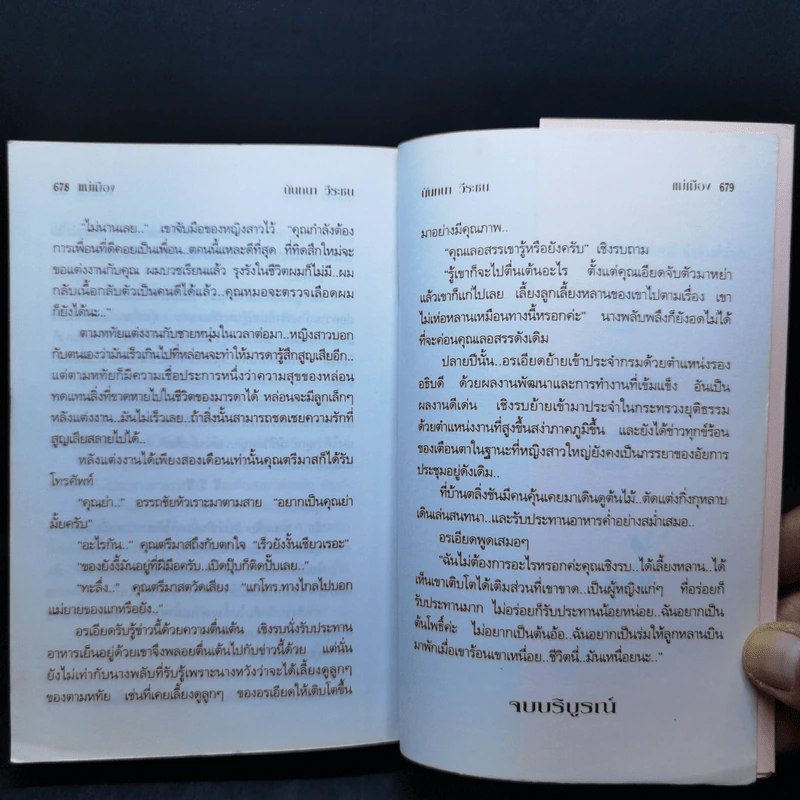 678 แม่เมือง นันทนา วีระชน
"ไม่นานเลย.." เขาจับมือของหญิงสาวไว้ "คุณกำลังต้อง
การเพื่อนที่ดีคอยเป็นเพื่อน..ตอนนี้แหละดีที่สุด ที่ทิดสึกใหม่จะ
ขอแต่งงานกับคุณ ผมบวชเรียนแล้ว รุงรังในชีวิตผมก็ไม่มี..ผม
กลับเนื้อกลับตัวเป็นคนดีได้แล้ว..คุณหมอจะตรวจเลือดผม
ก็ยังได้นะ.."
ตามหทัยแต่งงานกับชายหนุ่มในเวลาต่อมา..หญิงสาวบอก
กับตนเองว่ามันเร็วเกินไปที่หล่อนจะทำให้มารดารู้สึกสูญเสียอีก..
แต่ตามหทัยก็มีความเชื่อประการหนึ่งว่าความสุขของหล่อน
ทดแทนสิ่งที่ขาดหายไปในชีวิตของมารดาได้ หล่อนจะมีลูกเล็กๆ
หลังแต่งงาน..มันไม่เร็วเลย..ถ้าสิ่งนั้นสามารถชดเชยความรักที่
สูญเสียสลายไปได้..
หลังแต่งงานได้เพียงสองเดือนเท่านั้นคุณตรีมาสก็ได้รับ
โทรศัพท์
"คุณย่า.." อรรถชัยหัวเราะมาตามสาย "อยากเป็นคุณย่า
มั้ยครับ"
"อะไรกัน.." คุณตรีมาสถึงกับตกใจ "เร็วยังงั้นเชียวเรอะ"
"ของยังงี้มันอยู่ที่ฝีมือครับ..เปิดปุ๊บก็ติดปั๊บเลย.."
"ทะลึ่ง.." คุณตรีมาสตวัดเสียง "แกโทร.ทางไกลไปบอก
แม่ยายของแกหรือยัง.."
อรเอียดรับรู้ข่าวนี้ด้วยความตื่นเต้น เชิงรบนั่งรับประทาน
อาหารเย็นอยู่ด้วยเขาจึงพลอยตื่นเต้นไปกับข่าวนี้ด้วย แต่นั่น
ยังไม่เท่ากับนางพลับที่รับรู้เพราะนางหวังว่าจะได้เลี้ยงดูลูกๆ
ของตามหทัย เช่นที่เคยเลี้ยงดูลูกๆ ของอรเอียดให้เติบโตขึ้น
นันทนา วีระชน แม่เมือง 679
มาอย่างมีคุณภาพ..
"คุณเลอสรรเขารู้หรือยังครับ" เชิงรบถาม
"รู้เขาก็จะไปตื่นเต้นอะไร ตั้งแต่คุณเอียดจับตัวมาหย่า
แล้วเขาก็แก่ไปเลย เลี้ยงลูกเลี้ยงหลานของเขาไปตามเรื่อง เขา
ไม่เห่อหลานเหมือนทางนี้หรอกค่ะ" นางพลับพลึงก็ยังอดไม่ได้
ที่จะค่อนคุณเลอสรรดังเดิม
ปลายปีนั้น..อรเอียดย้ายเข้าประจำกรมด้วยตำแหน่งรอง
อธิบดี ด้วยผลงานพัฒนาและการทำงานที่เข้มแข็ง อันเป็น
ผลงานดีเด่น เชิงรบย้ายเข้ามาประจำในกระทรวงยุติธรรม
ด้วยตำแหน่งงานที่สูงขึ้นสง่าภาคภูมิขึ้น และยังได้ข่าวทุกข์ร้อน
ของเตือนตาในฐานะที่หญิงสาวใหญ่ยังคงเป็นภรรยาของอัยการ
ประชุมอยู่ดังเดิม..
ที่บ้านตลิ่งชันมีคนคุ้นเคยมาเดินดูต้นไม้..ตัดแต่งกิ่งกุหลาบ
เดินเล่นสนทนา..และรับประทานอาหารค่ำอย่างสม่ำเสมอ..
อรเอียดพูดเสมอๆ
"ฉันไม่ต้องการอะไรหรอกค่ะคุณเชิงรบ..ได้เลี้ยงหลาน..ได้
เห็นเขาเติบโตได้เติมส่วนที่เขาขาด..เป็นผู้หญิงแก่ๆ ที่อร่อยก็
รับประทานมาก ไม่อร่อยก็รับประทานน้อยหน่อย..ฉันอยากเป็น
ต้นโพธิ์ค่ะ ไม่อยากเป็นต้นอ้อ..ฉันอยากเป็นร่มให้ลูกหลานบิน
มาพักเมื่อเขาร้อนเขาเหนื่อย..ชีวิตนี่..มันเหนื่อยนะ.."
จบบริบูรณ์